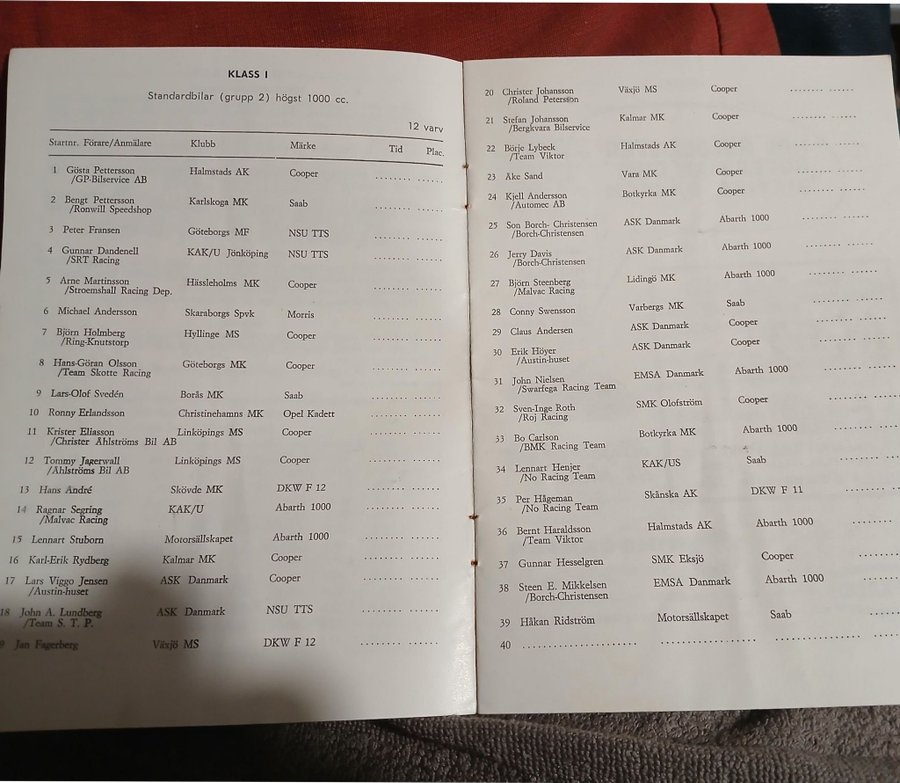 KLASS I
Standardbilar (grupp 2) högst 1000 cc.
12 varv
Startnr. Förare/Anmälare Klubb Märke Tid Plac.
1 Gösta Pettersson Halmstads AK Cooper ........ ......
/GP-Bilservice AB
2 Bengt Pettersson Karlskoga MK Saab ........ ......
/Ronwill Speedshop
3 Peter Fransen Göteborgs MF NSU TTS ........ ......
4 Gunnar Dandenell KAK/U Jönköping NSU TTS ........ ......
/SRT Racing
5 Arne Martinsson Hässleholms MK Cooper ........ ......
/Stroemshall Racing Dep.
6 Michael Andersson Skaraborgs Spvk Morris ........ ......
7 Björn Holmberg Hyllinge MS Cooper ........ ......
/Ring-Knutstorp
8 Hans-Göran Olsson Göteborgs MK Cooper ........ ......
/Team Skotte Racing
9 Lars-Olof Svedén Borås MK Saab ........ ......
10 Ronny Erlandsson Christinehamns MK Opel Kadett ........ ......
11 Krister Eliasson Linköpings MS Cooper ........ ......
/Christer Ahlströms Bil AB
12 Tommy Jagerwall Linköpings MS Cooper ........ ......
/Ahlströms Bil AB
13 Hans André Skövde MK DKW F 12 ........ ......
14 Ragnar Segring KAK/U Abarth 1000 ........ ......
/Malvac Racing
15 Lennart Stuborn Motorsällskapet Abarth 1000 ........ ......
16 Karl-Erik Rydberg Kalmar MK Cooper ........ ......
17 Lars Viggo Jensen ASK Danmark Cooper ........ ......
/Austin-huset
18 John A. Lundberg ASK Danmark NSU TTS ........ ......
/Team S. T. P.
9 Jan Fagerberg Växjö MS DKW F 12 ........ ......
20 Christer Johansson Växjö MS Cooper ........ ......
/Roland Petersson
21 Stefan Johansson Kalmar MK Cooper ........ ......
/Bergkvara Bilservice
22 Börje Lybeck Halmstads AK Cooper ........ ......
/Team Viktor
23 Åke Sand Vara MK Cooper ........ ......
24 Kjell Andersson Botkyrka MK Cooper ........ ......
/Automec AB
25 Son Borch- Christensen ASK Danmark Abarth 1000 ........ ......
/Borch-Christensen
26 Jerry Davis ASK Danmark Abarth 1000 ........ ......
/Borch-Christensen
27 Björn Steenberg Lidingö MK Abarth 1000 ........ ......
/Malvac Racing
28 Conny Swensson Varbergs MK Saab ........ ......
29 Claus Andersen ASK Danmark Cooper ........ ......
30 Erik Höyer ASK Danmark Cooper ........ ......
/Austin-huset
31 John Nielsen EMSA Danmark Abarth 1000 ........ ......
/Swarfega Racing Team
32 Sven-Inge Roth SMK Olofström Cooper ........ ......
/Roj Racing
33 Bo Carlson Botkyrka MK Abarth 1000 ........ ......
/BMK Racing Team
34 Lennart Henjer KAK/US Saab ........ ......
/No Racing Team
35 Per Hågeman Skånska AK DKW F 11 ........ ...
/No Racing Team
36 Bernt Haraldsson Halmstads AK Abarth 1000 ........ ....
/Team Viktor
37 Gunnar Hesselgren SMK Eksjö Cooper ........
38 Steen E. Mikkelsen EMSA Danmark Abarth 1000 .......
/Borch-Christensen
39 Håkan Ridström Motorsällskapet Saab ......
40 ........................ ........................ ........................ ......